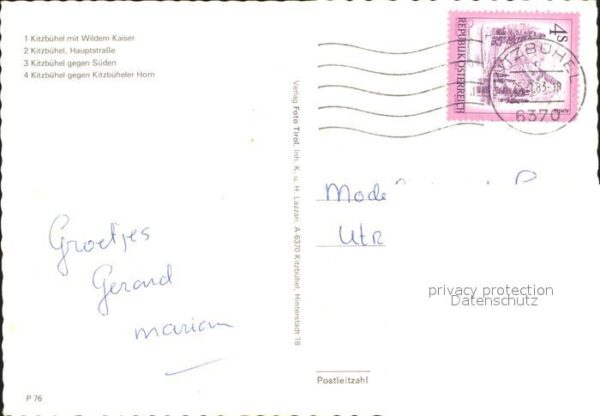 1 Kitzbühel mit Wildem Kaiser
2 Kitzbühel, Hauptstraße
3 Kitzbühel gegen Süden
4 Kitzbühel gegen Kitzbüheler Horn
Groetjes
Gerard
marian
P 76
Verlag Foto Tirol, Inh. K. u. H. Lazzari, A 6370 Kitzbühel, Hinterstadt 18
4s
REPUBLIK ÖSTERREICH
KITZBÜHEL
83-19
6370
Mode
Utr
privacy protection
Datenschutz
Postleitzahl